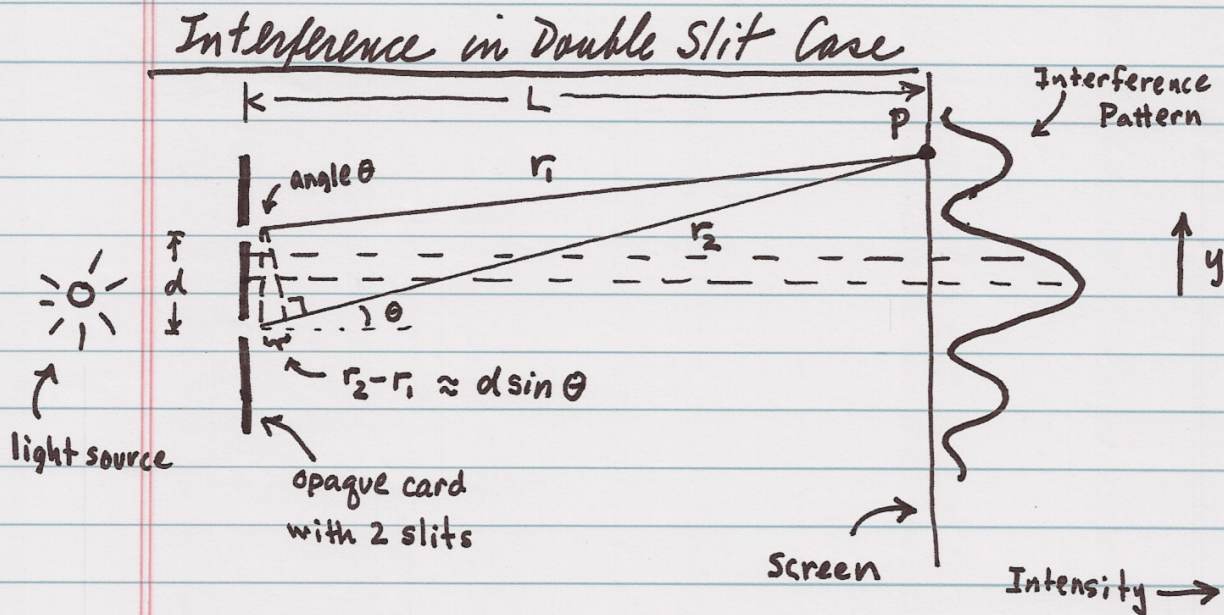 Interference in Double Slit Case
L
Interference
Pattern
P
r₁
angle θ
r₂
y
d
θ
r₂-r₁ ≈ d sin θ
light source
opaque card
with 2 slits
Screen
Intensity →